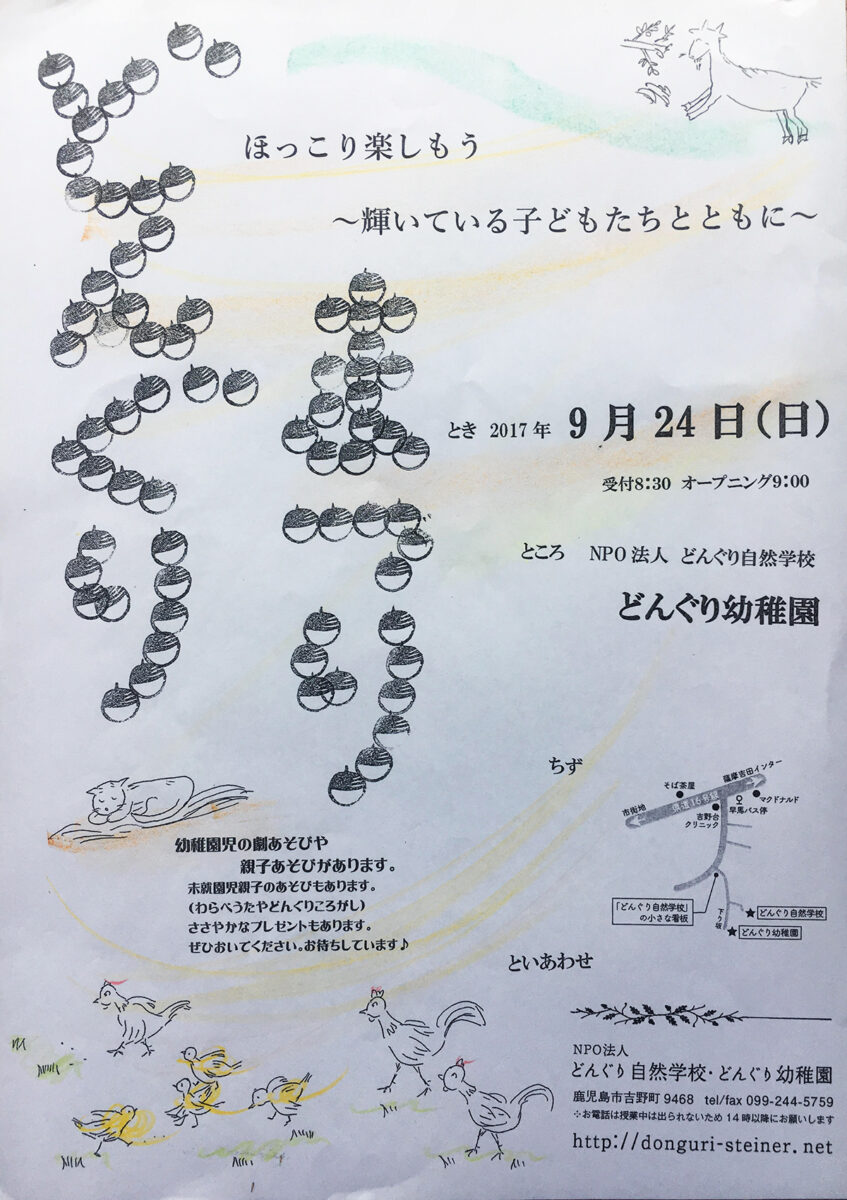 どんぐり
まつり
ほっこり楽しもう
～輝いている子どもたちとともに～
とき 2017年 9月24日(日)
受付8:30 オープニング9:00
ところ NPO法人 どんぐり自然学校
どんぐり幼稚園
ちず
薩摩吉田インター
そば茶屋
マクドナルド
市街地
県道16号線
早馬バス停
吉野台
クリニック
「どんぐり自然学校」
の小さな看板
下り坂
★どんぐり自然学校
★どんぐり幼稚園
幼稚園児の劇あそびや
親子あそびがあります。
未就園児親子のあそびもあります。
(わらべうたやどんぐりころがし)
ささやかなプレゼントもあります。
ぜひおいでください。お待ちしています♪
といあわせ
NPO法人
どんぐり自然学校・どんぐり幼稚園
鹿児島市吉野町 9468 tel/fax 099-244-5759
※お電話は授業中は出られないため 14時以降にお願いします
http://donguri-steiner.net